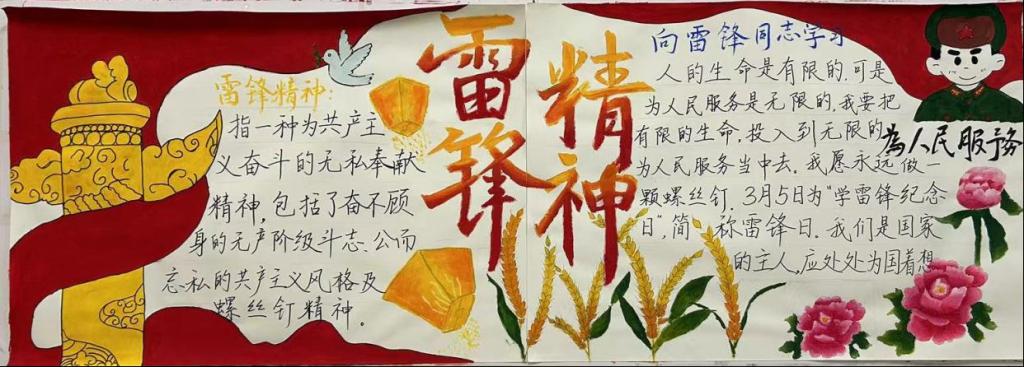 雷锋精神
雷锋精神:
指一种为共产主
义奋斗的无私奉献
精神,包括了奋不顾
身的无产阶级斗志.公而
忘私的共产主义风格及
螺丝钉精神。
向雷锋同志学习
人的生命是有限的.可是
为人民服务是无限的.我要把
有限的生命,投入到无限的
为人民服务当中去.我愿永远做一
颗螺丝钉.3月5日为"学雷锋纪念
日",简称雷锋日.我们是国家
的主人,应处处为国着想
為人民服务